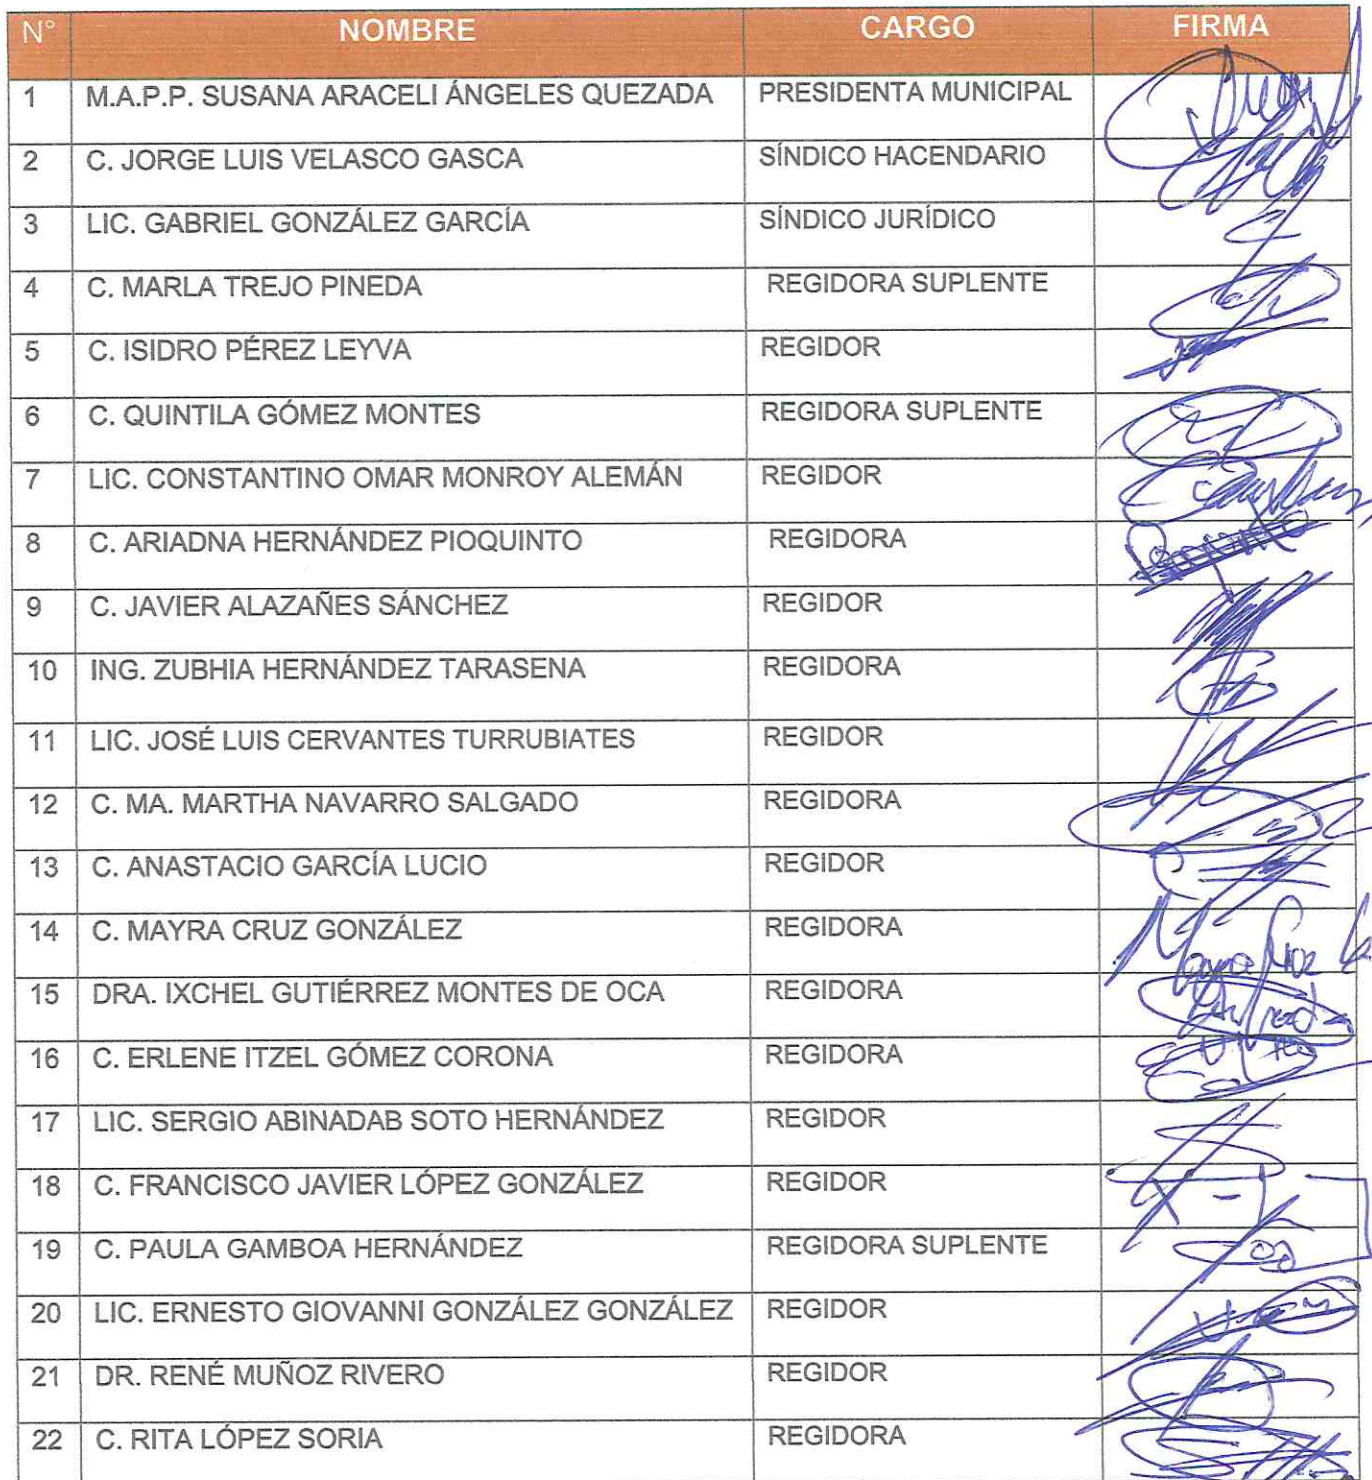 N° NOMBRE CARGO FIRMA
1 M.A.P.P. SUSANA ARACELI ÁNGELES QUEZADA PRESIDENTA MUNICIPAL
2 C. JORGE LUIS VELASCO GASCA SÍNDICO HACENDARIO
3 LIC. GABRIEL GONZÁLEZ GARCÍA SÍNDICO JURÍDICO
4 C. MARLA TREJO PINEDA REGIDORA SUPLENTE
5 C. ISIDRO PÉREZ LEYVA REGIDOR
6 C. QUINTILA GÓMEZ MONTES REGIDORA SUPLENTE
7 LIC. CONSTANTINO OMAR MONROY ALEMÁN REGIDOR
8 C. ARIADNA HERNÁNDEZ PIOQUINTO REGIDORA
9 C. JAVIER ALAZAÑES SÁNCHEZ REGIDOR
10 ING. ZUBHIA HERNÁNDEZ TARASENA REGIDORA
11 LIC. JOSÉ LUIS CERVANTES TURRUBIATES REGIDOR
12 C. MA. MARTHA NAVARRO SALGADO REGIDORA
13 C. ANASTACIO GARCÍA LUCIO REGIDOR
14 C. MAYRA CRUZ GONZÁLEZ REGIDORA
15 DRA. IXCHEL GUTIÉRREZ MONTES DE OCA REGIDORA
16 C. ERLENE ITZEL GÓMEZ CORONA REGIDORA
17 LIC. SERGIO ABINADAB SOTO HERNÁNDEZ REGIDOR
18 C. FRANCISCO JAVIER LÓPEZ GONZÁLEZ REGIDOR
19 C. PAULA GAMBOA HERNÁNDEZ REGIDORA SUPLENTE
20 LIC. ERNESTO GIOVANNI GONZÁLEZ GONZÁLEZ REGIDOR
21 DR. RENÉ MUÑOZ RIVERO REGIDOR
22 C. RITA LÓPEZ SORIA REGIDORA